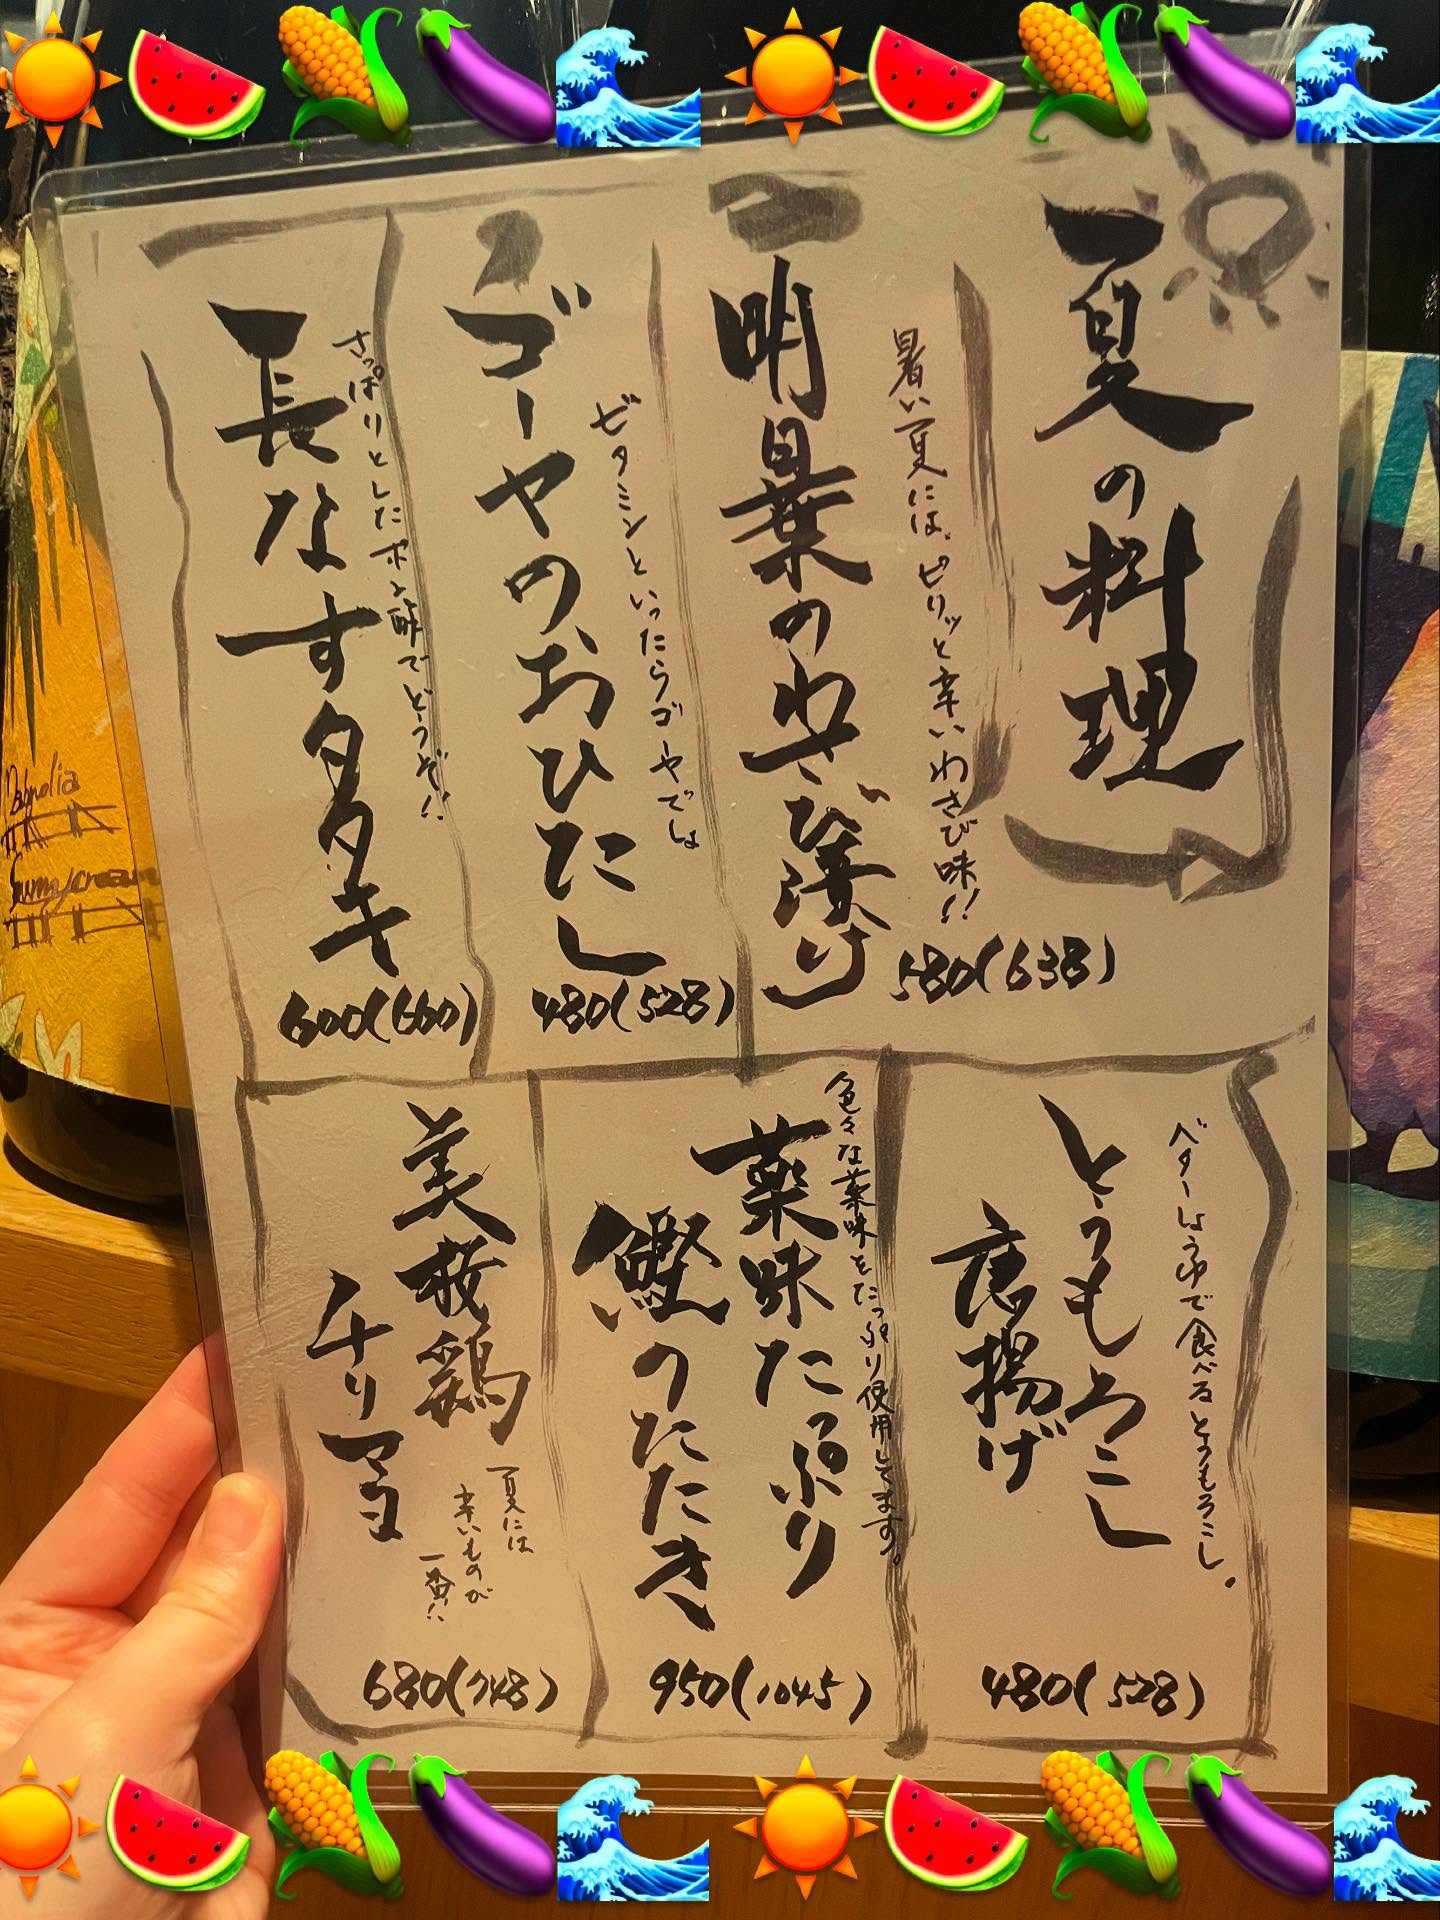 夏の料理
暑い夏には、ピリッと辛いわさび味!!
明日葉のわさび漬け
580(638)
ビタミンといったらゴーヤでしょ
ゴーヤのおひたし
480(528)
さっぱりとしたポン酢でどうぞ!!
長なすタタキ
600(660)
バターしょうゆで食べるとうもろこし。
とうもろこし
唐揚げ
480(528)
色々な薬味をたっぷり使用してます。
薬味たっぷり
鰹のたたき
950(1045)
美桜鶏
チリマヨ
夏には
辛いものが
一番!!
680(748)
Magnolia